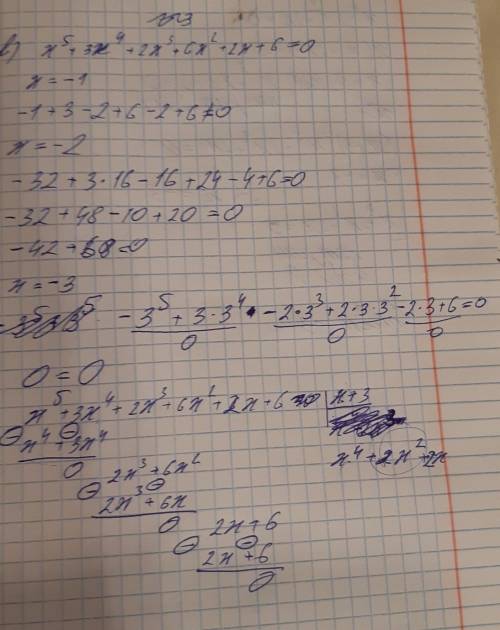 №3
в) x⁵+3x⁴+2x³+6x²+2x+6=0
x=-1
-1+3-2+6-2+6≠0
x=-2
-32+3·16-16+24-4+6=0
-32+48-10+20=0
x=-3
-3⁵+3·3⁴-2·3³+2·3·3²-2·3+6=0
0 0 0
0=0
x⁵+3x⁴+2x³+6x²+2x+6 x+3
x⁴+3x⁴ x⁴+2x²+2x
0 2x³+6x²
2x³+6x
0 2x+6
2x+6
0